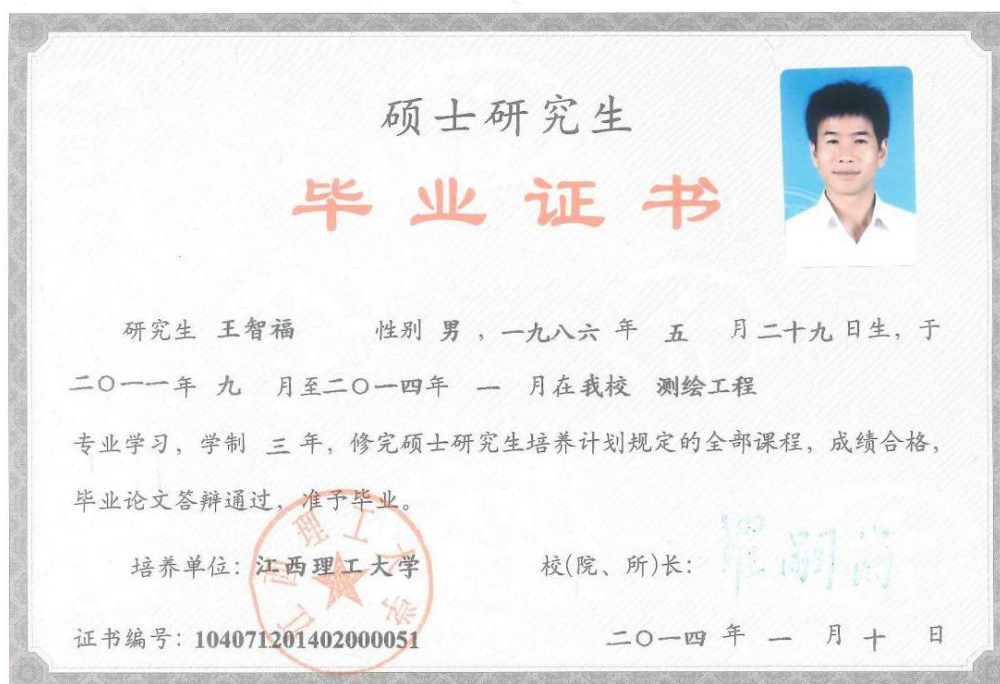 硕士研究生
毕业证书
研究生 王智福 性别 男 ，一九八六 年 五 月二十九日生，于
二〇一一年 九 月至二〇一四年 一 月在我校 测绘工程
专业学习，学制 三 年，修完硕士研究生培养计划规定的全部课程，成绩合格，
毕业论文答辩通过，准予毕业。
培养单位：江西理工大学 校(院、所)长：
江西理工大学
证书编号：104071201402000051 二〇一四 年 一 月 十 日